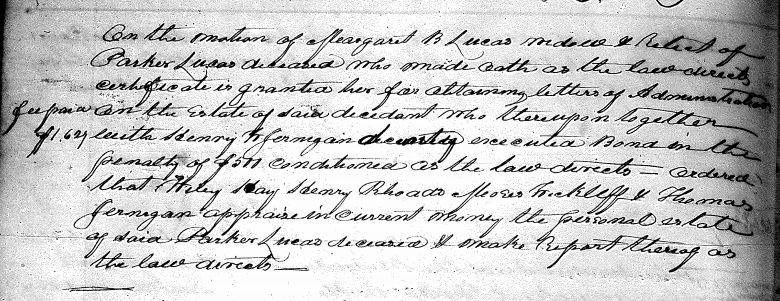 On the motion of Margaret B Lucas widow & Relict of
Parker Lucas deceased who made oath as the law directs
certificate is granted her for obtaining letters of Administration
fee paid on the Estate of said decedant who thereupon together
$1.62½ with Henry F Jernigan security executed Bond in the
penalty of $500 conditioned as the law directs — ordered
that Wiley Hay Henry Rhoads Moses Wickliff & Thomas
Jernigan appraise in current money the personal estate
of said Parker Lucas deceased & make Report thereof as
the law directs —